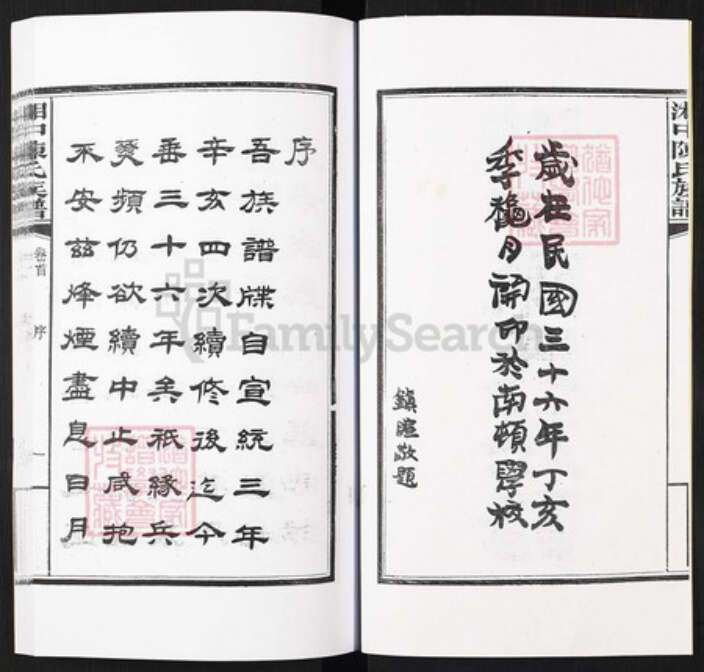 湘中陳氏族譜
歲在民國三十六年丁亥
季龝月開印於南頓學校
鎮暄敬題
序
吾族譜牒自宣統三年
辛亥四次續修後迄今
垂三十六年矣祇緣兵
燹頻仍欲續中止咸抱
不安茲烽煙盡息日月
湘中陳氏族譜
卷首
序
一
FamilySearch